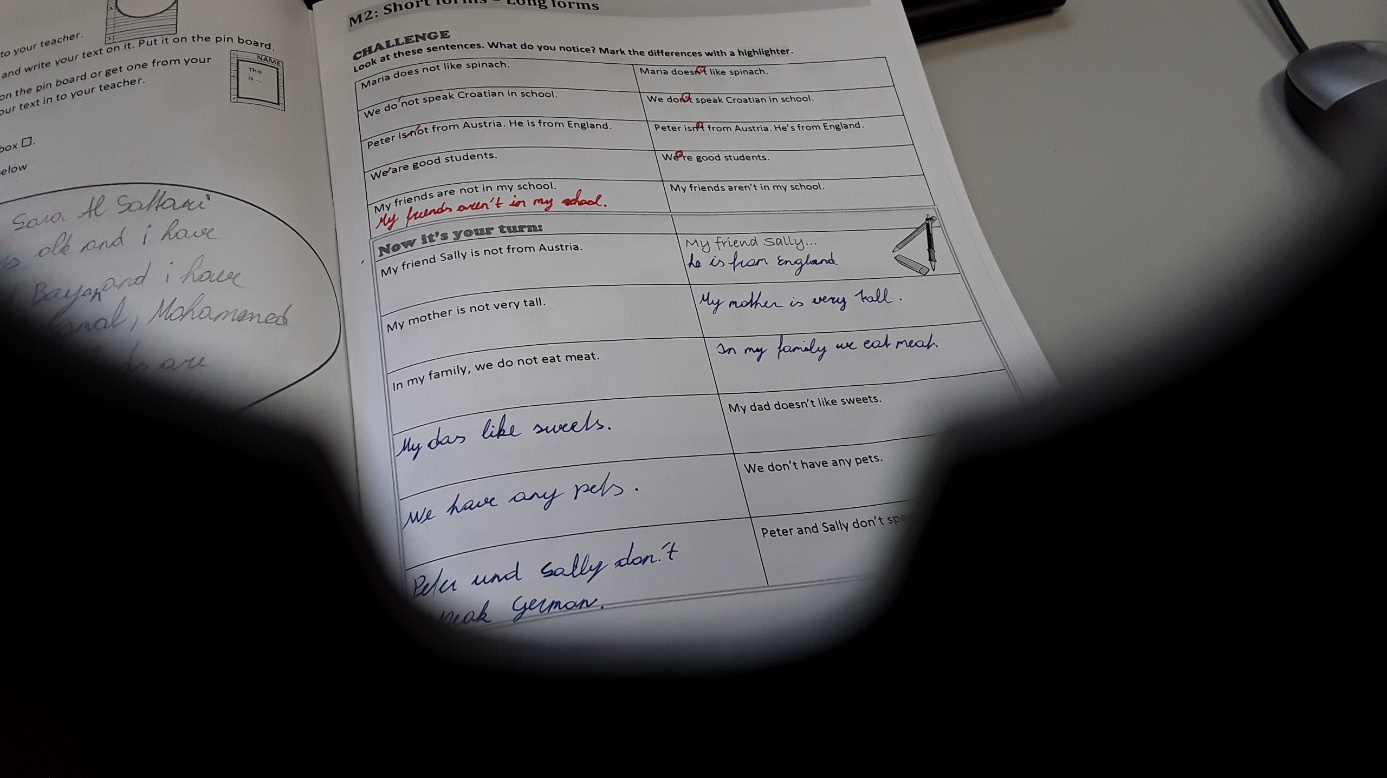 to your teacher.
and write your text on it. Put it on the pin board,
on the pin board or get one from your
our text in to your teacher.
NAME
This
is ...
box □.
elow
Sara Al Sallami
old and i have
and i have
Mohammed
are
M2: Short forms – Long forms
CHALLENGE
Look at these sentences. What do you notice? Mark the differences with a highlighter.
Maria does not like spinach.
Maria doesn't like spinach.
We do not speak Croatian in school.
We don't speak Croatian in school.
Peter is not from Austria. He is from England.
Peter isn't from Austria. He's from England.
We are good students.
We're good students.
My friends are not in my school.
My friends aren't in my school.
My friends aren't in my school.
Now it's your turn:
My friend Sally is not from Austria.
My friend Sally...
he is from England
My mother is not very tall.
My mother is very tall.
In my family, we do not eat meat.
In my family we eat meat.
My das like sweets.
My dad doesn't like sweets.
We have any pets.
We don't have any pets.
Peter und Sally don't
peak German.
Peter and Sally don't spe